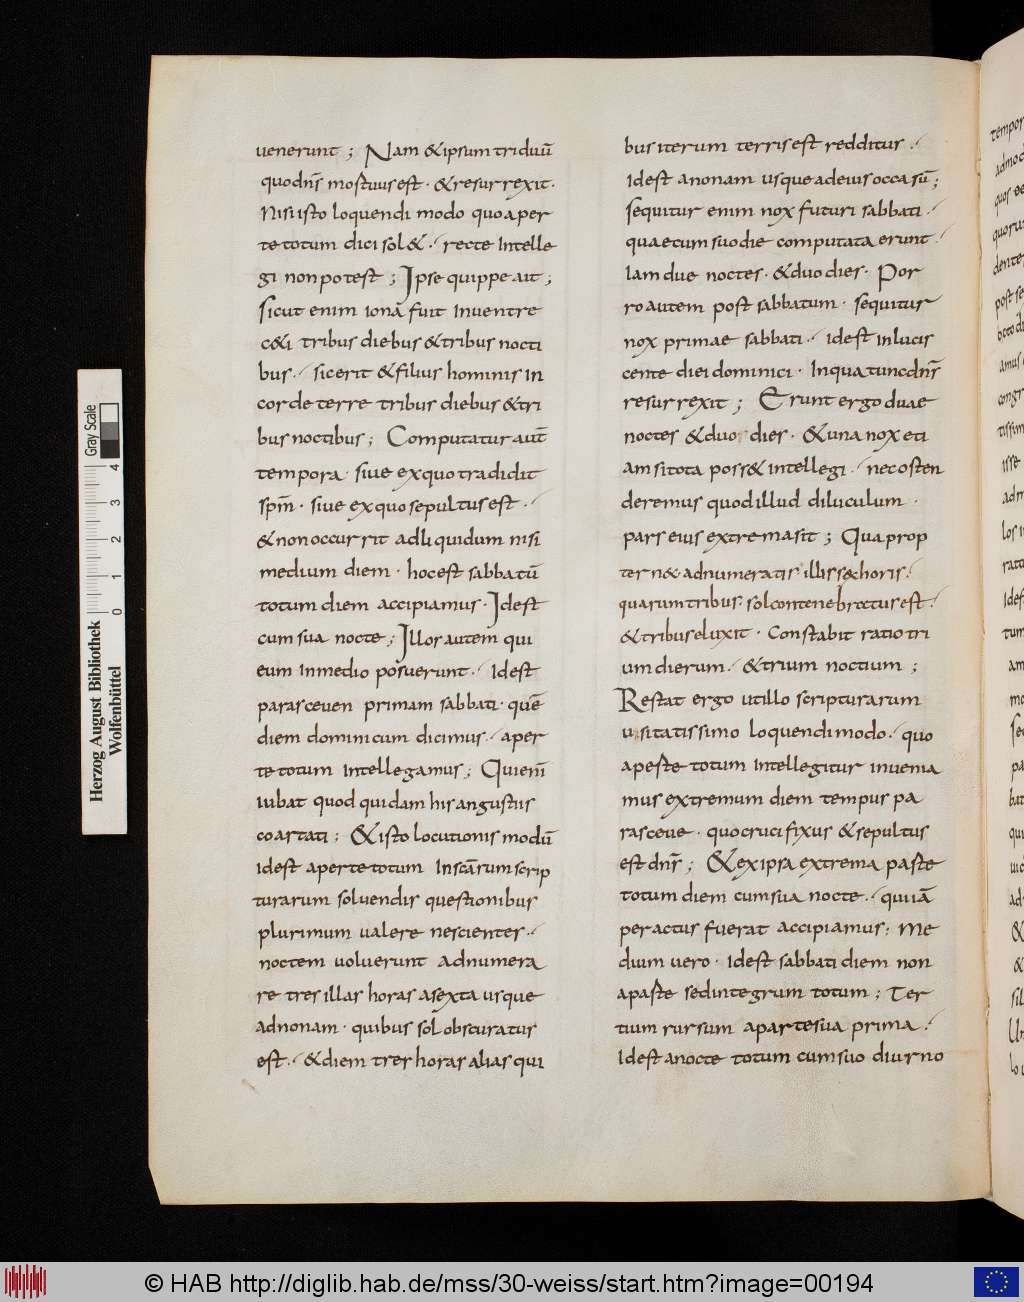 uenerunt ; Nam & ipsum triduū
quo dn̄s mortuus est · & resurrexit ·
Nisi isto loquendi modo quo aper
te totum dici sol& ·/ recte intelle
gi non potest ; Ipse quippe ait ;
sicut enim ionā fuit inuentre
c&i tribus diebus & tribus nocti
bus ·/ sic erit & filius hominis in
corde terre tribus diebus & tri
bus noctibus ; Computatur aut̄
tempora · siue ex quo tradidit
sp̄m · siue ex quo sepultus est ·/
& non occurrit adliquidum nisi
medium diem · hoc est sabbatū
totum diem accipiamus · Idest
cum sua nocte ; Illos autem qui
eum in medio posuerunt ·/ Idest
parasceuen primam sabbati · quē
diem dominicum dicimus ·/ aper
te totum intellegamus ; Qui enī
iubat quod quidam his angustiis
coartati ; & isto locutionis modū
idest aperte totum in sc̄arum scrip
turarum soluendis questionibus
plurimum ualere nescientes ·/
noctem uoluerunt adnumera
re tres illas horas a sexta usque
ad nonam · quibus sol obscuratur
est ·/ & diem tres horas alias qui
bus iterum terris est redditur ·/
idest a nonam usque ad eius occasū ;
sequitur enim nox futuri sabbati ·/
quae cum suo die computata erunt ·/
iam due noctes · & duo dies · Por
ro autem post sabbatum · sequitur
nox primae sabbati ·/ idest in lucis
cente diei dominici · In qua tunc dn̄s
resurrexit ; Erunt ergo duae
noctes & duo dies · & una nox eti
am si tota poss& intellegi · nec osten
deremus quod illud diluculum ·
pars eius extrema sit ; Qua prop
ter n& · adnumeratis illis s& horis ·/
quarum tribus · sol contenebrectus est ·/
& tribus eluxit · Constabit ratio tri
um dierum · & trium noctium ;
Restat ergo ut illo scripturarum
usitatissimo loquendi modo · quo
apeste totum intellegitur inuenia
mus extremum diem tempus pa
rasceue · quo crucifixus & sepultus
est dn̄s ; & ex ipsa extrema paste
totum diem cum sua nocte ·/ qui iā
peractus fuerat accipiamus ; Me
dium uero · idest sabbati diem non
a paste sed integrum totum ; Ter
tium rursum a parte sua prima ·/
Idest a nocte totum cum suo diurno
tempor
quos
quoru
dente
post se
octo d
amus
congr
tissim
isse
adm
los i
Idef
tum
am
Herzog August Bibliothek
Wolfenbüttel
Gray Scale
0 1 2 3 4
© HAB http://diglib.hab.de/mss/30-weiss/start.htm?image=00194